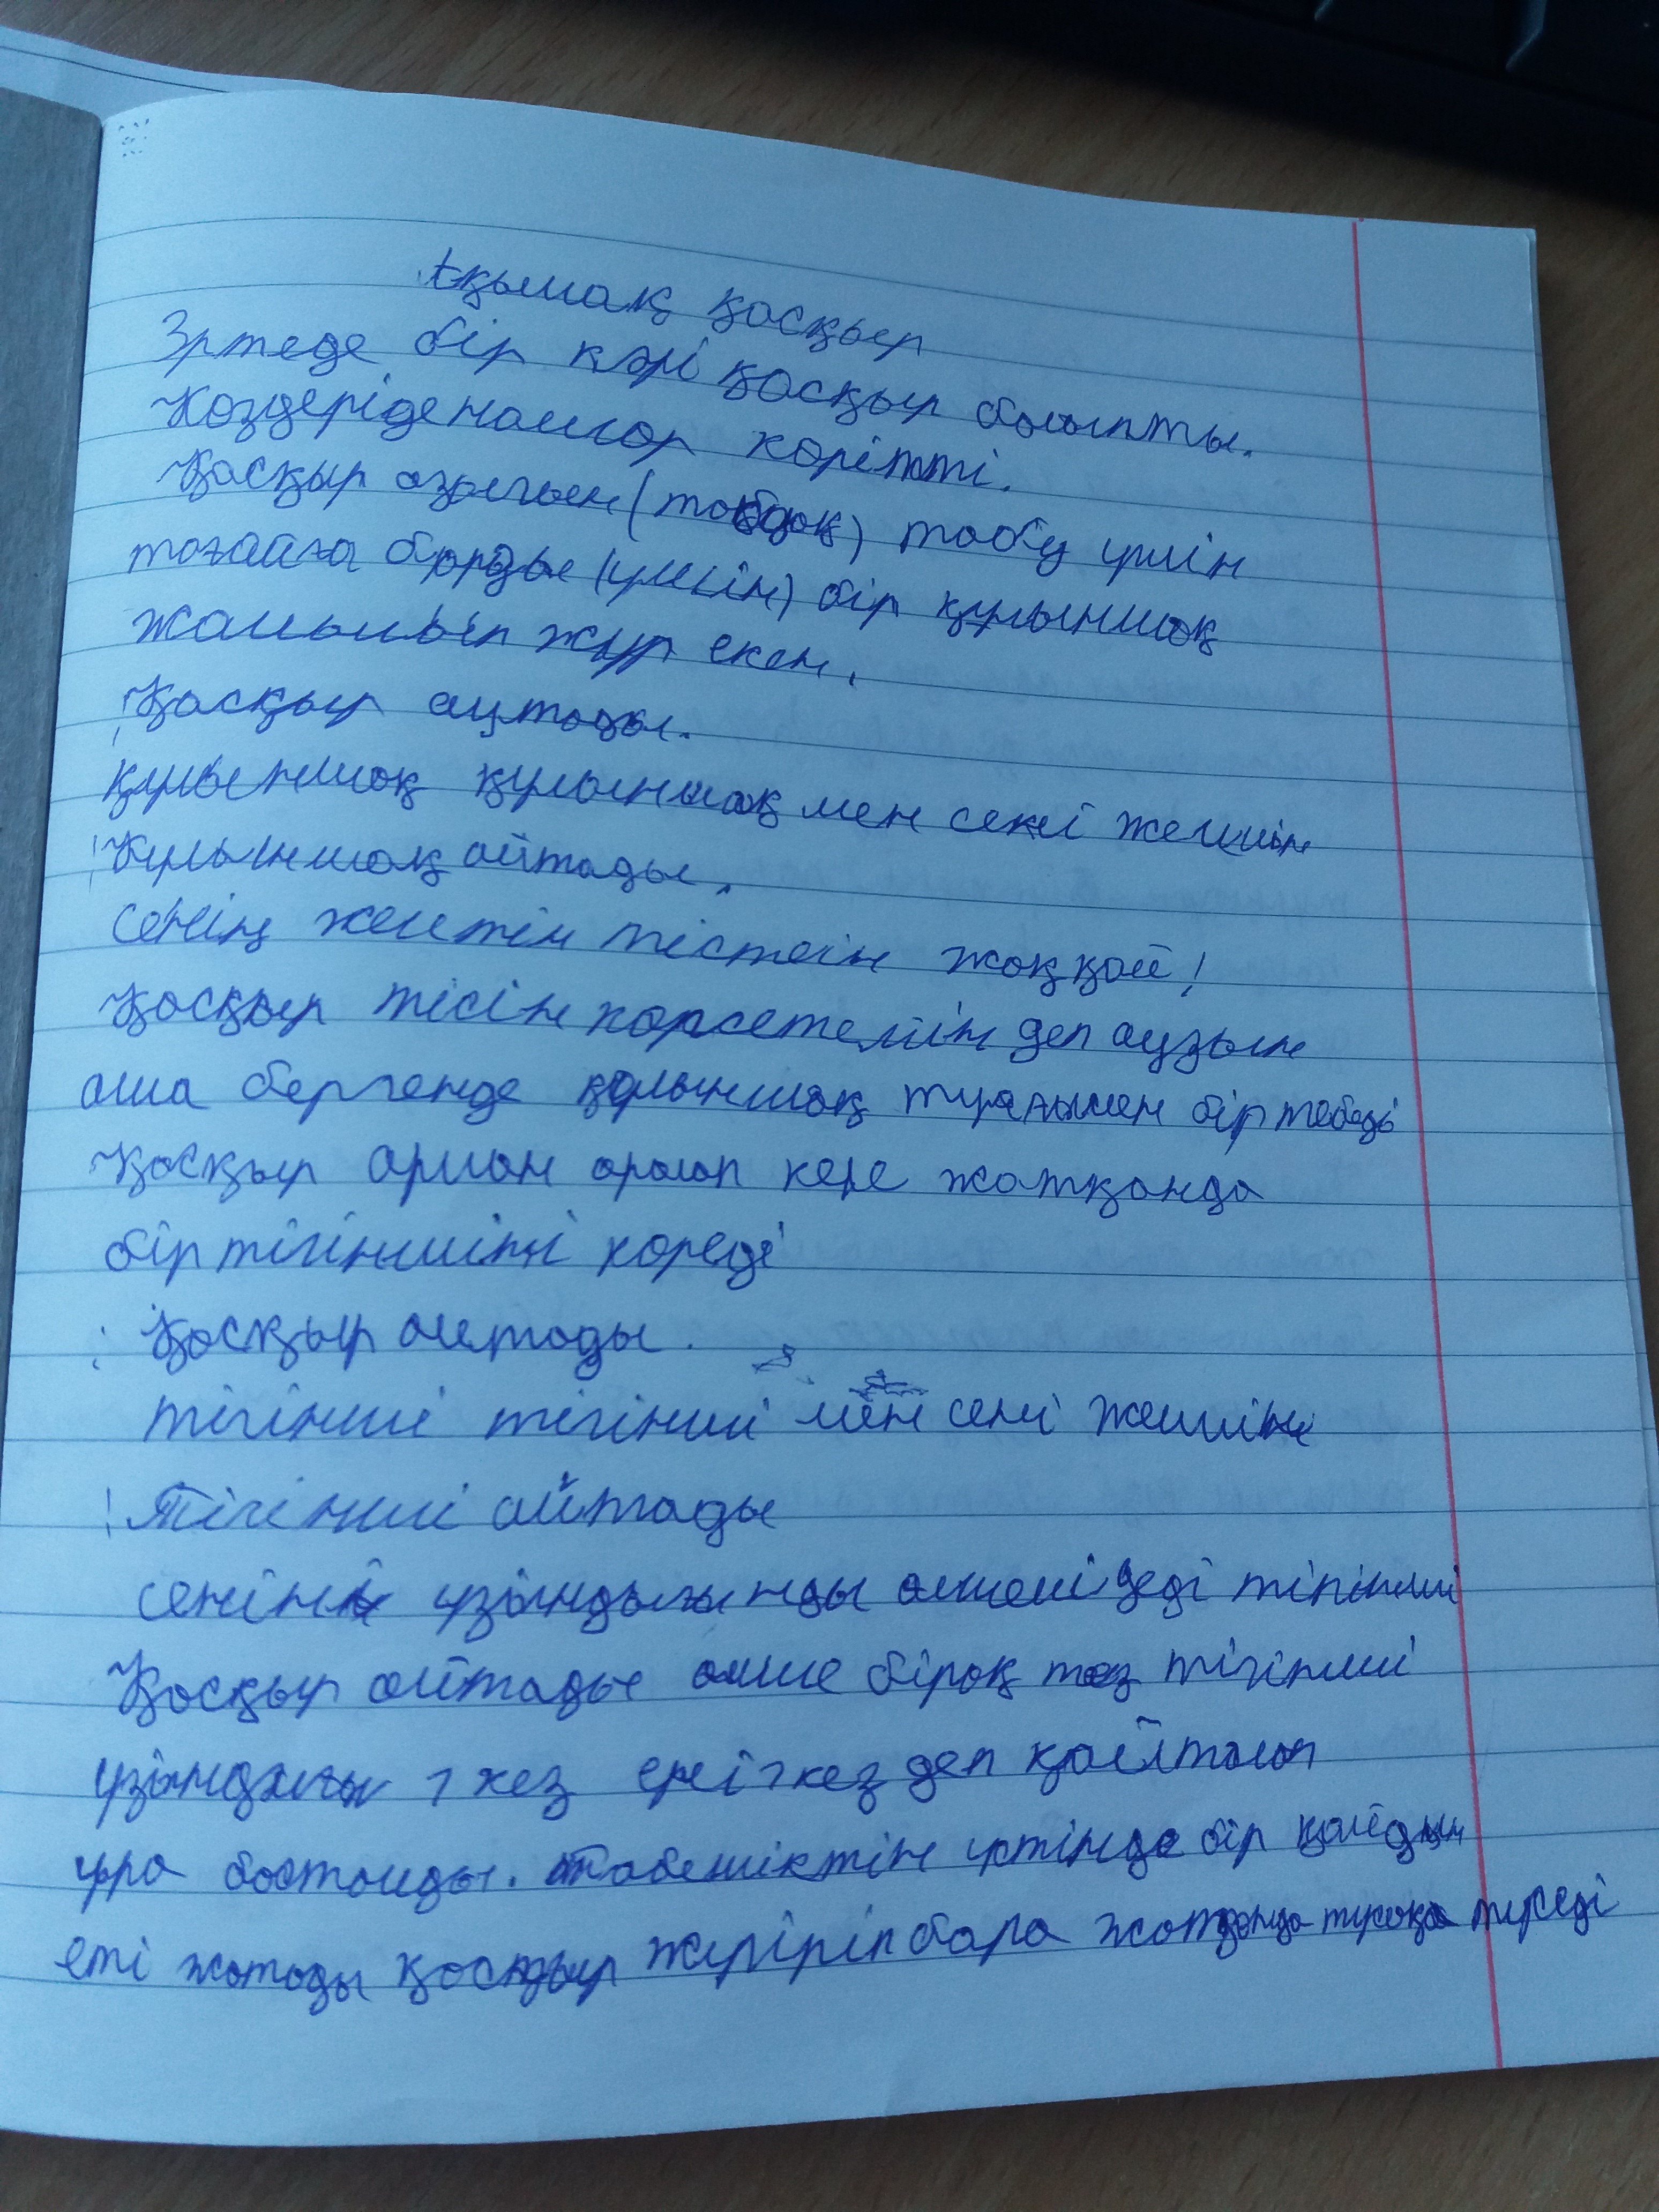 қышақ қасқыр
Эртеде бір кәрі қасқыр болыпты.
Көздеріде нашар көріпті.
Қасқыр азығын (тамақ) табу үшін
тоғайға барды (үшін) бір құлыншақ
жайылып жүр екен.
Қасқыр аутады.
құлыншақ құлыншақ мен сені жеймін
Құлыншақ айтады.
сенің жейтін тістеін жоққой!
Қасқыр тісін көрсетемін деп аузын
аша бергенде құлыншақ тұяғымен бір тебеді
Қасқыр орман аралап келе жатқанда
бір тігіншіні көреді
Қасқыр айтады.
тігінші тігінші мен сені жеймін
Тігінші айтады
сенің ұзындығынды өлшейі деді тігінші
Қасқыр айтады өлше бірақ тез тігінші
ұзындығы 1 кез ені 1 кез деп қайталап
ұра бастайды. Төбешіктін үстінде бір қойдын
еті жатады қасқыр жүгіріп бара жатқанда тұзаққа түседі